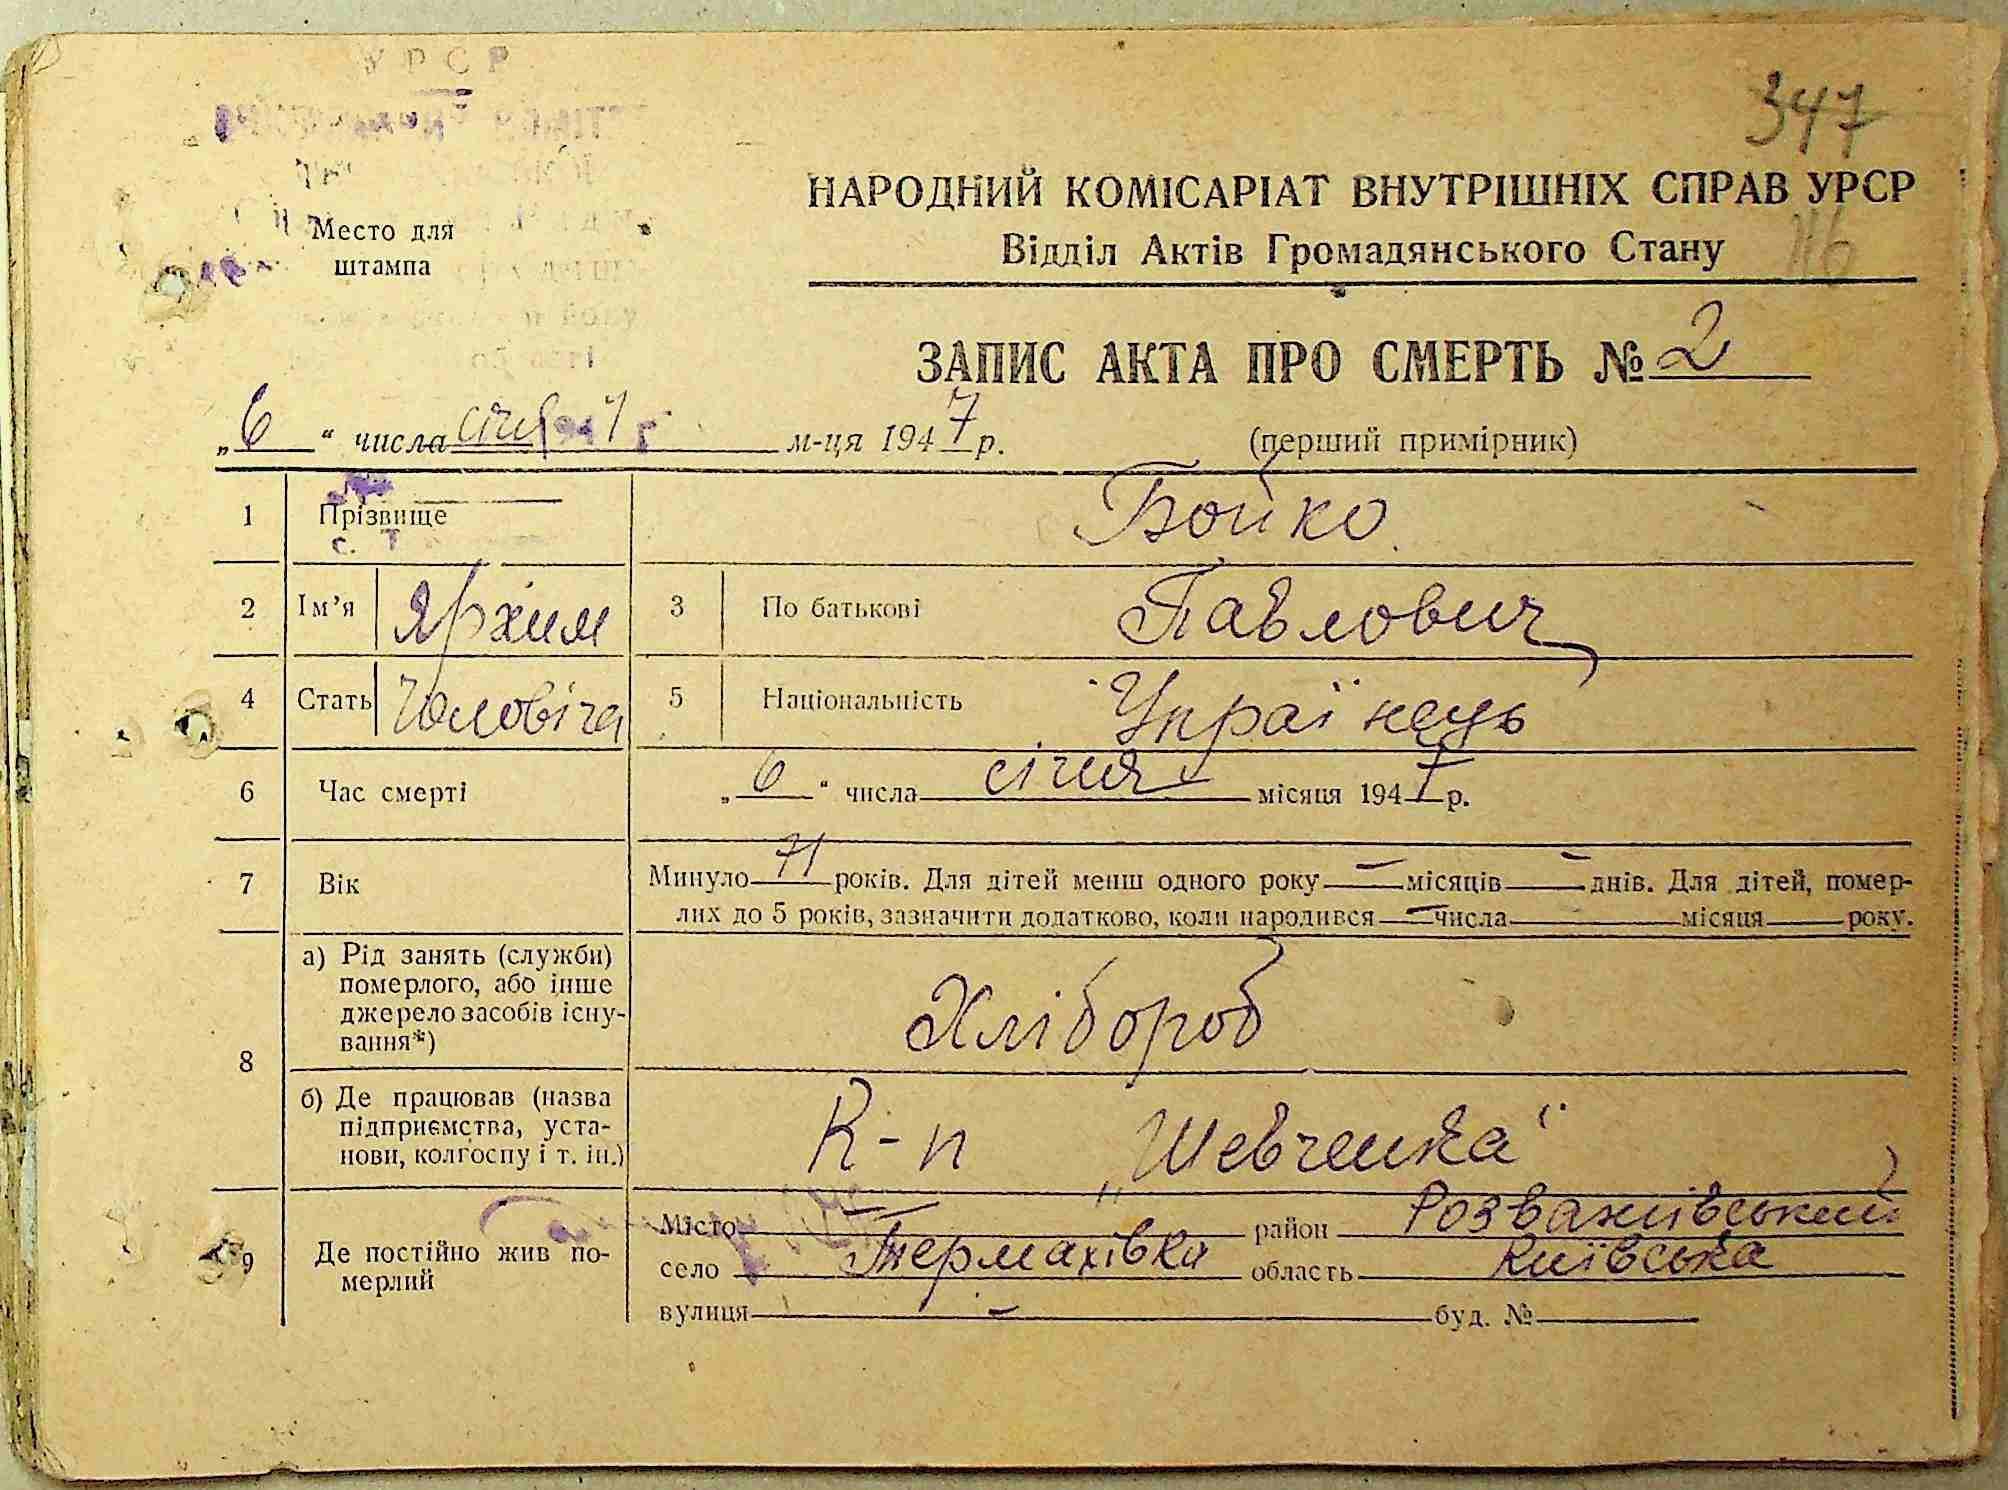 УРСР
347
Место для
штампа
НАРОДНИЙ КОМІСАРІАТ ВНУТРІШНІХ СПРАВ УРСР
Відділ Актів Громадянського Стану
116
ЗАПИС АКТА ПРО СМЕРТЬ № 2
„6“ числа січня м-ця 1947 р.
(перший примірник)
1 Прізвище Бойко
2 Ім’я Ярхим 3 По батькові Павлович
4 Стать Чоловіча 5 Національність Українець
6 Час смерті „6“ числа січня місяця 1947 р.
7 Вік Минуло 71 років. Для дітей менш одного року — місяців — днів. Для дітей, помер-
лих до 5 років, зазначити додатково, коли народився — числа — місяця року.
8 а) Рід занять (служби)
померлого, або інше
джерело засобів існу-
вання*)
Хлібороб
б) Де працював (назва
підприємства, уста-
нови, колгоспу і т. ін.)
К-п „Шевченка“
9 Де постійно жив по-
мерлий
Місто — район Розважівський
село Термахівка область Київська
вулиця — буд. №